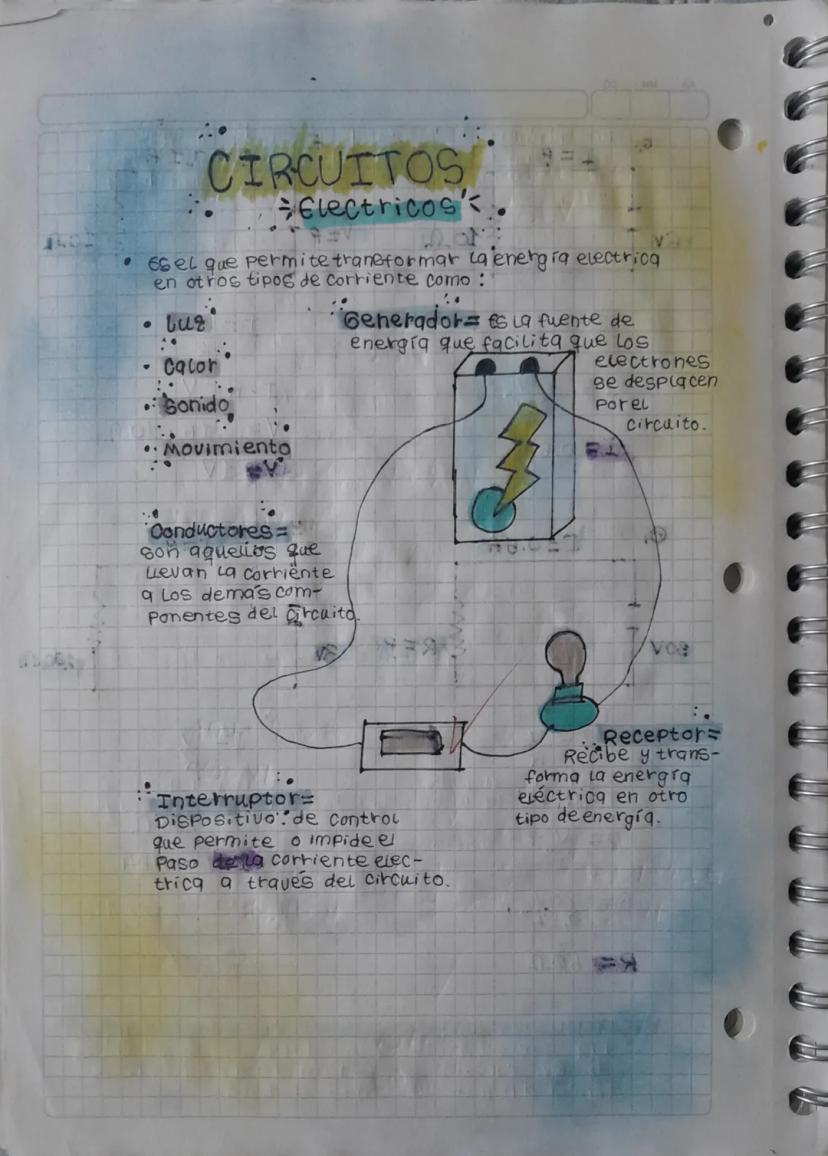 CIRCUITOS
Electricos
• Es el que permite transformar la energía electrica
en otros tipos de corriente como:
• Luz
• Calor
• Sonido
• Movimiento
Generador= Es la fuente de
energía que facilita que los
electrones
se desplacen
por el
circuito.
Conductores=
son aquellos que
llevan la corriente
a los demás com-
ponentes del circuito.
Receptor=
Recibe y trans-
forma la energía
eléctrica en otro
tipo de energía.
Interruptor=
Dispositivo de control
que permite o impide el
paso de la corriente elec-
trica a través del circuito.